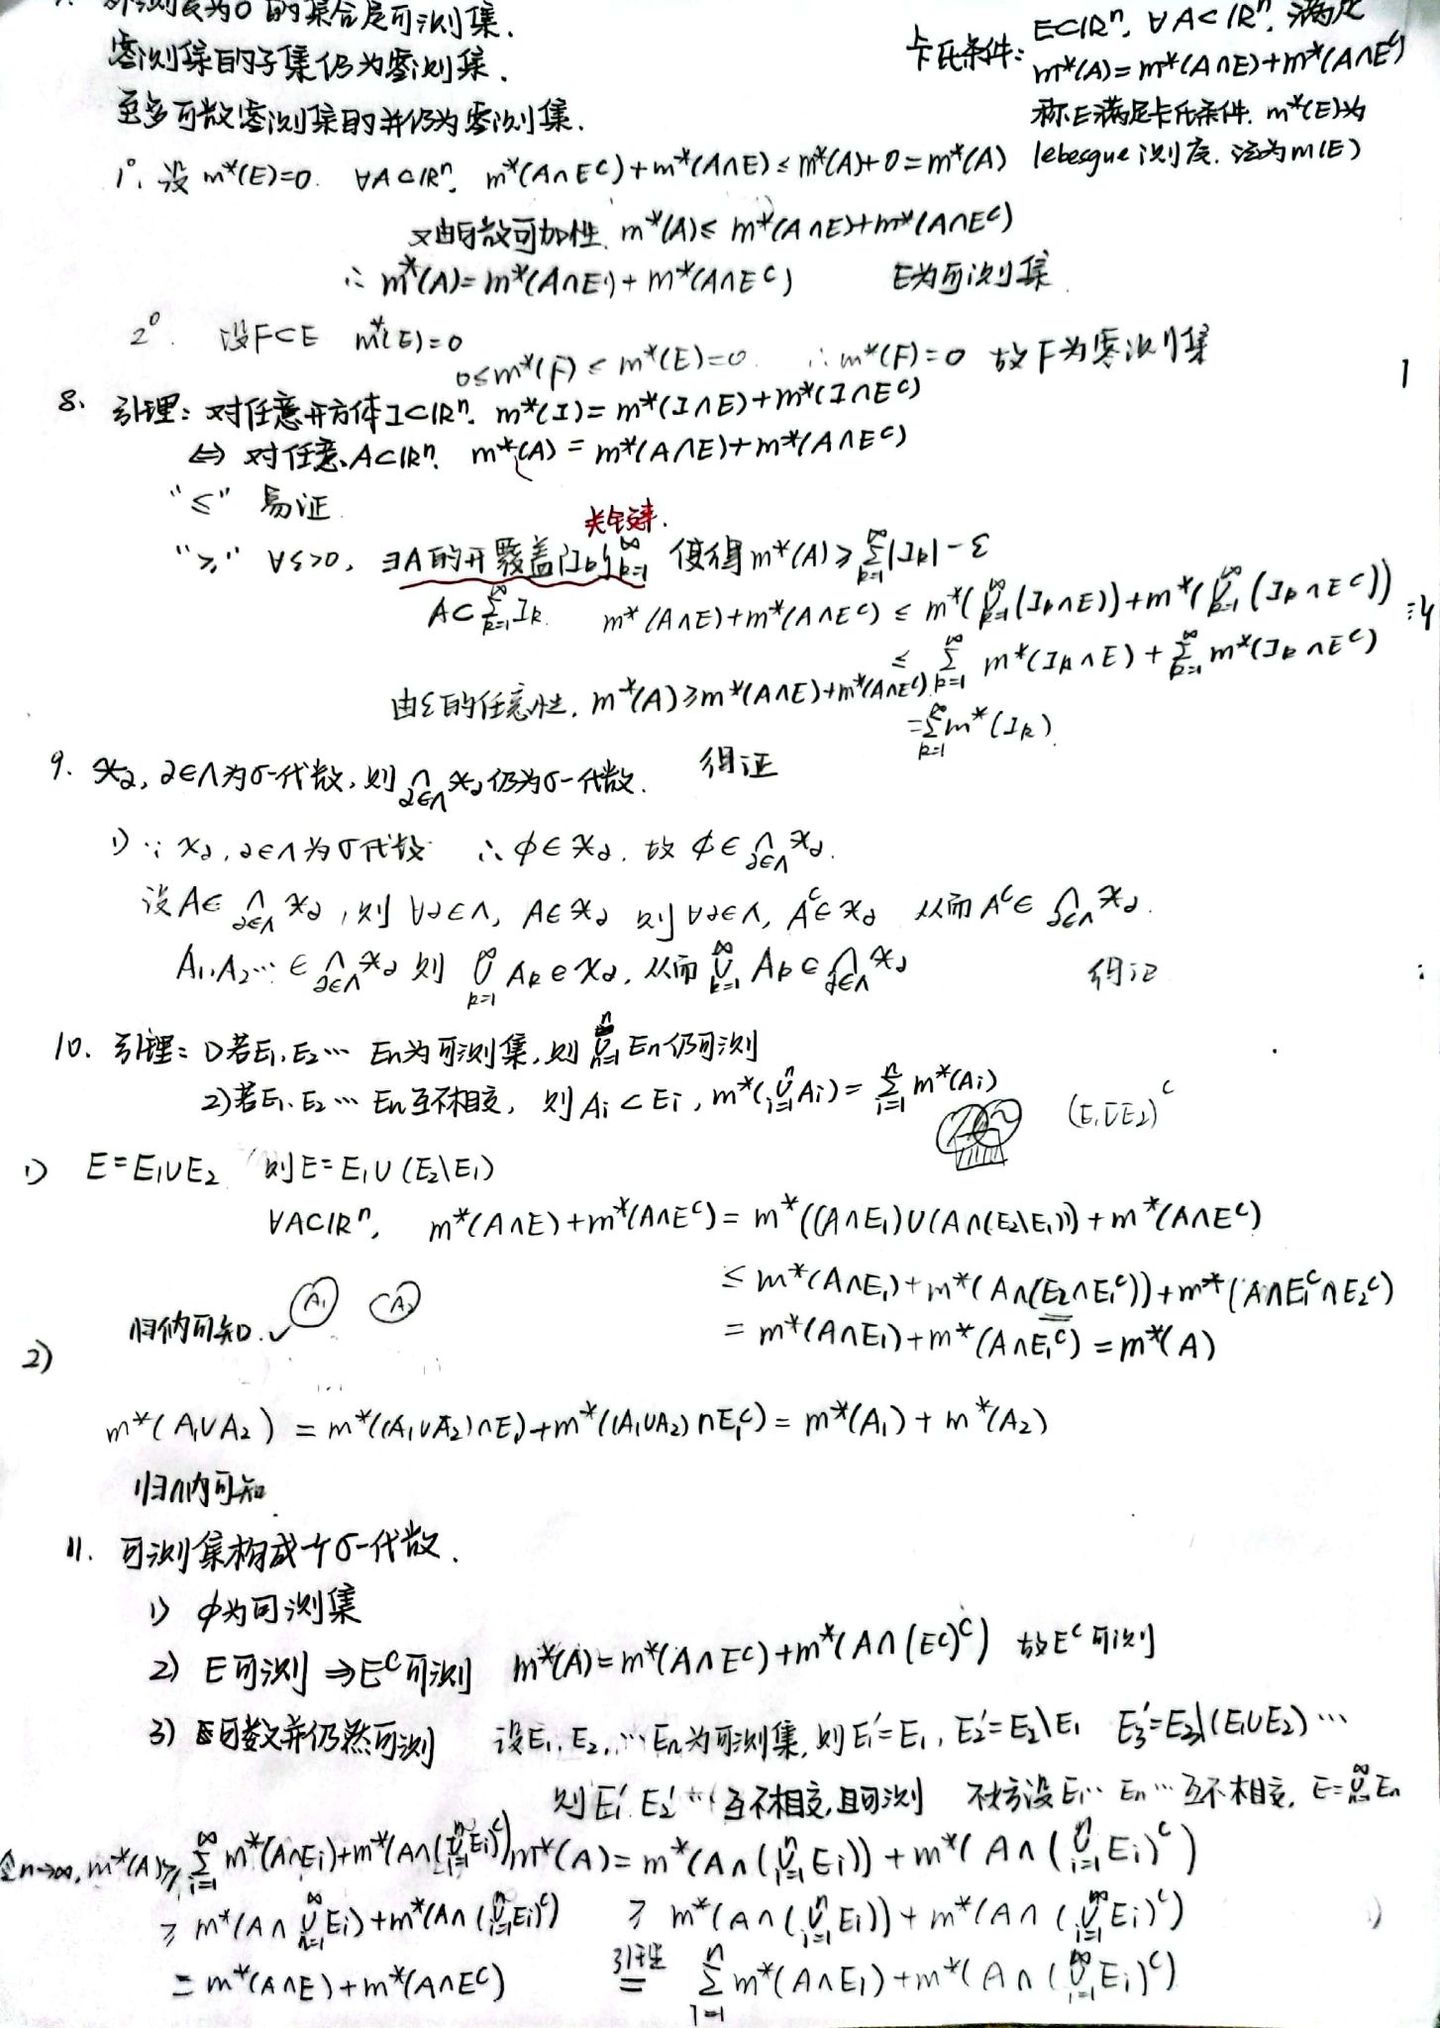 7. 外测度为0的集合是可测集.
零测集的子集仍为零测集.
至多可数零测集的并仍为零测集.
卡氏条件: E⊂IRⁿ, ∀A⊂IRⁿ, 满足
m*(A)=m*(A∩E)+m*(A∩Eᶜ)
称E满足卡氏条件. m*(E)为
lebesgue测度. 记为m(E)
1°. 设 m*(E)=0. ∀A⊂IRⁿ, m*(A∩Eᶜ)+m*(A∩E)≤m*(A)+0=m*(A)
又由可数可加性, m*(A)≤ m*(A∩E)+m*(A∩Eᶜ)
∴ m*(A)=m*(A∩E)+m*(A∩Eᶜ) E为可测集.
2°. 设F⊂E m*(E)=0
0≤m*(F)≤m*(E)=0. ∴m*(F)=0 故F为零测集
8. 引理: 对任意开方体I⊂IRⁿ. m*(I)=m*(I∩E)+m*(I∩Eᶜ)
⇔ 对任意A⊂IRⁿ. m*(A)=m*(A∩E)+m*(A∩Eᶜ)
"≤" 易证.
"≥" ∀ε>0, ∃A的开覆盖{I_k}_{k=1}^∞ 使得m*(A)≥∑_{k=1}^∞|I_k|-ε
A⊂∑_{k=1}^∞ I_k. m*(A∩E)+m*(A∩Eᶜ) ≤ m*(⋃_{k=1}^∞(I_k∩E))+m*(⋃_{k=1}^∞(I_k∩Eᶜ))
≤ ∑_{k=1}^∞ m*(I_k∩E)+∑_{k=1}^∞ m*(I_k∩Eᶜ)
由ε的任意性, m*(A)≥m*(A∩E)+m*(A∩Eᶜ)
=∑_{k=1}^∞ m*(I_k).
得证
9. 𝒳_α, α∈Λ为σ-代数, 则⋂_{α∈Λ}𝒳_α仍为σ-代数.
1) ∵ 𝒳_α, α∈Λ为σ代数 ∴ ϕ∈𝒳_α. 故 ϕ∈⋂_{α∈Λ}𝒳_α.
设A∈⋂_{α∈Λ}𝒳_α, 则∀α∈Λ, A∈𝒳_α 则∀α∈Λ, Aᶜ∈𝒳_α 从而Aᶜ∈⋂_{α∈Λ}𝒳_α.
A₁,A₂…∈⋂_{α∈Λ}𝒳_α 则 ⋃_{k=1}^∞ A_k∈𝒳_α, 从而⋃_{k=1}^∞ A_k∈⋂_{α∈Λ}𝒳_α 得证
10. 引理: 1)若E₁,E₂… En为可测集, 则⋃_{n=1}^n En仍可测
2)若E₁,E₂… En互不相交, 则Ai⊂Ei, m*(⋃_{i=1}^n Ai)=∑_{i=1}^n m*(Ai)
(E₁∪E₂)ᶜ
1) E=E₁∪E₂ 则E=E₁∪(E₂\E₁)
∀A⊂IRⁿ, m*(A∩E)+m*(A∩Eᶜ)=m*((A∩E₁)∪(A∩(E₂\E₁)))+m*(A∩Eᶜ)
≤ m*(A∩E₁)+m*(A∩(E₂∩E₁ᶜ))+m*(A∩E₁ᶜ∩E₂ᶜ)
= m*(A∩E₁)+m*(A∩E₁ᶜ)=m*(A)
归纳可知. ✓ A₁ A₂
2)
m*(A₁∪A₂)=m*((A₁∪A₂)∩E₁)+m*((A₁∪A₂)∩E₁ᶜ)=m*(A₁)+m*(A₂)
归纳可知
11. 可测集构成个σ-代数.
1) ϕ为可测集
2) E可测⇒Eᶜ可测 m*(A)=m*(A∩Eᶜ)+m*(A∩(Eᶜ)ᶜ) 故Eᶜ可测
3) 可数并仍然可测 设E₁,E₂,…En为可测集, 则E₁'=E₁, E₂'=E₂\E₁ E₃'=E₃\(E₁∪E₂)…
则E₁',E₂'…互不相交,且可测 不妨设E₁…En…互不相交, E=⋃_{n=1}^∞ En
m*(A)=m*(A∩(⋃_{i=1}^n Ei))+m*(A∩(⋃_{i=1}^n Ei)ᶜ)
≥ m*(A∩(⋃_{i=1}^n Ei))+m*(A∩(⋃_{i=1}^∞ Ei)ᶜ)
引理 = ∑_{i=1}^n m*(A∩Ei)+m*(A∩(⋃_{i=1}^∞ Ei)ᶜ)
令n→∞, m*(A)≥∑_{i=1}^∞ m*(A∩Ei)+m*(A∩(⋃_{i=1}^n Ei)ᶜ)
≥ m*(A∩⋃_{n=1}^∞ Ei)+m*(A∩(⋃_{i=1}^n Ei)ᶜ)
= m*(A∩E)+m*(A∩Eᶜ)